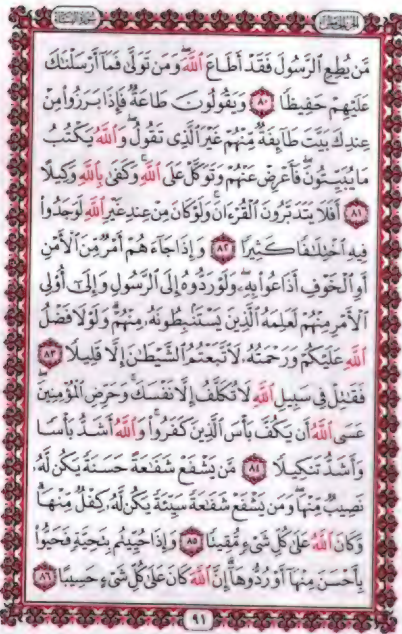 الجزء الخامس سورة النساء
مَّن يُطِعِ ٱلرَّسُولَ فَقَدْ أَطَاعَ ٱللَّهَ ۖ وَمَن تَوَلَّىٰ فَمَآ أَرْسَلْنَـٰكَ
عَلَيْهِمْ حَفِيظًا ٨٠ وَيَقُولُونَ طَاعَةٌ فَإِذَا بَرَزُوا۟ مِنْ
عِندِكَ بَيَّتَ طَآئِفَةٌ مِّنْهُمْ غَيْرَ ٱلَّذِى تَقُولُ ۖ وَٱللَّهُ يَكْتُبُ
مَا يُبَيِّتُونَ ۖ فَأَعْرِضْ عَنْهُمْ وَتَوَكَّلْ عَلَى ٱللَّهِ ۚ وَكَفَىٰ بِٱللَّهِ وَكِيلًا
٨١ أَفَلَا يَتَدَبَّرُونَ ٱلْقُرْءَانَ ۚ وَلَوْ كَانَ مِنْ عِندِ غَيْرِ ٱللَّهِ لَوَجَدُوا۟
فِيهِ ٱخْتِلَـٰفًا كَثِيرًا ٨٢ وَإِذَا جَآءَهُمْ أَمْرٌ مِّنَ ٱلْأَمْنِ
أَوِ ٱلْخَوْفِ أَذَاعُوا۟ بِهِۦ ۖ وَلَوْ رَدُّوهُ إِلَى ٱلرَّسُولِ وَإِلَىٰٓ أُو۟لِى
ٱلْأَمْرِ مِنْهُمْ لَعَلِمَهُ ٱلَّذِينَ يَسْتَنۢبِطُونَهُۥ مِنْهُمْ ۗ وَلَوْلَا فَضْلُ
ٱللَّهِ عَلَيْكُمْ وَرَحْمَتُهُۥ لَٱتَّبَعْتُمُ ٱلشَّيْطَـٰنَ إِلَّا قَلِيلًا ٨٣
فَقَـٰتِلْ فِى سَبِيلِ ٱللَّهِ لَا تُكَلَّفُ إِلَّا نَفْسَكَ ۚ وَحَرِّضِ ٱلْمُؤْمِنِينَ ۖ
عَسَى ٱللَّهُ أَن يَكُفَّ بَأْسَ ٱلَّذِينَ كَفَرُوا۟ ۚ وَٱللَّهُ أَشَدُّ بَأْسًا
وَأَشَدُّ تَنكِيلًا ٨٤ مَّن يَشْفَعْ شَفَـٰعَةً حَسَنَةً يَكُن لَّهُۥ
نَصِيبٌ مِّنْهَا ۖ وَمَن يَشْفَعْ شَفَـٰعَةً سَيِّئَةً يَكُن لَّهُۥ كِفْلٌ مِّنْهَا ۗ
وَكَانَ ٱللَّهُ عَلَىٰ كُلِّ شَىْءٍ مُّقِيتًا ٨٥ وَإِذَا حُيِّيتُم بِتَحِيَّةٍ فَحَيُّوا۟
بِأَحْسَنَ مِنْهَآ أَوْ رُدُّوهَآ ۗ إِنَّ ٱللَّهَ كَانَ عَلَىٰ كُلِّ شَىْءٍ حَسِيبًا ٨٦
٩١